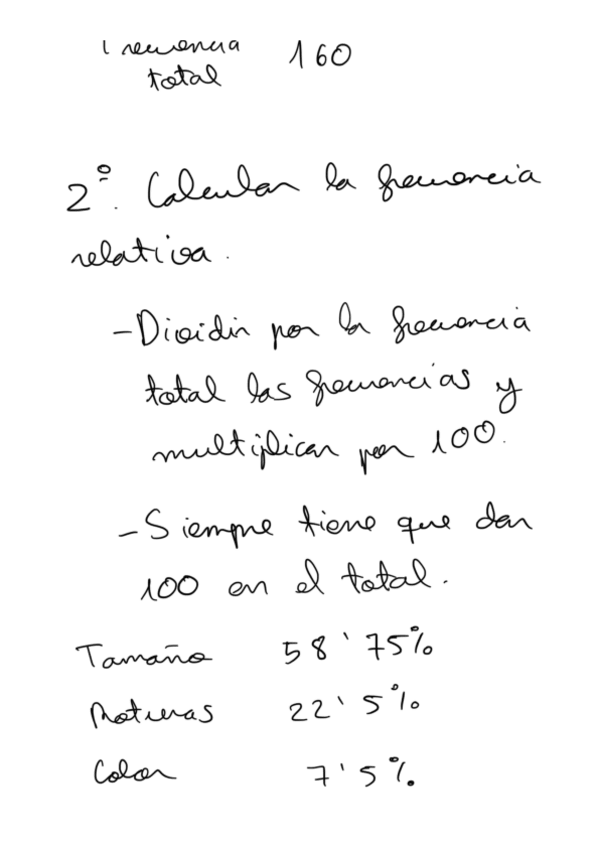 Frecuencia 160
total
2º. Calcular la frecuencia
relativa.
- Dividir por la frecuencia
total las frecuencias y
multiplicar por 100.
- Siempre tiene que dar
100 en el total.
Tamaño 58'75%
Roturas 22'5%
Color 7'5%